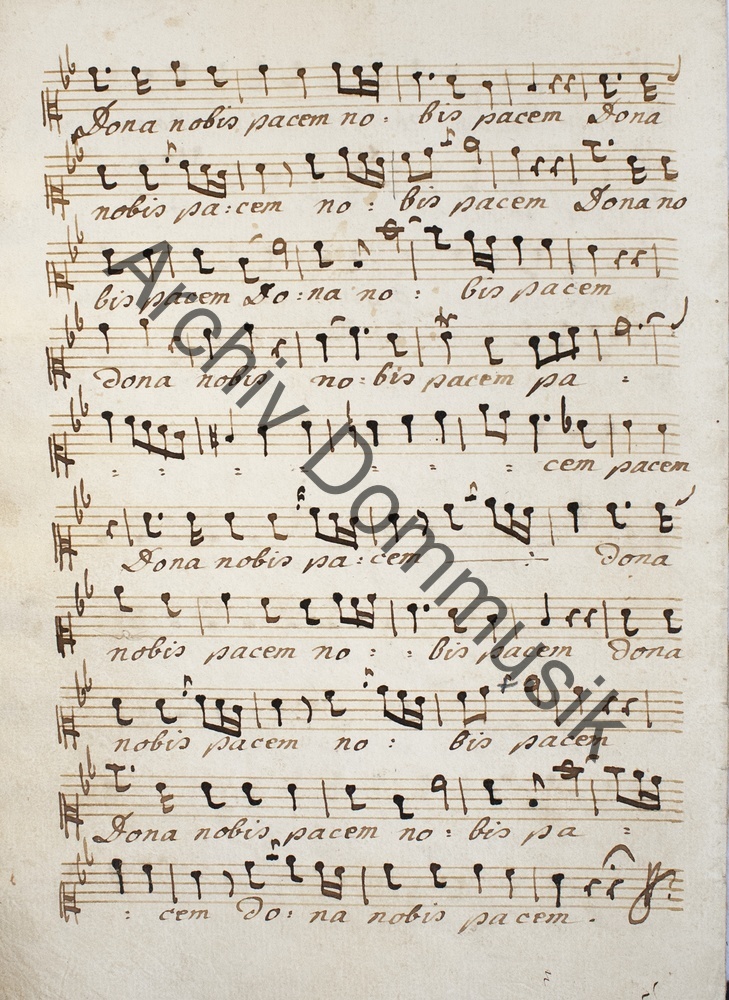 Dona nobis pacem no : bis pacem Dona
nobis pa : cem no : bis pacem Dona no
bis pacem Do : na no : bis pacem
dona nobis no : bis pacem pa :
: : : : : : : cem pacem
Dona nobis pa : cem dona
nobis pacem no : : bis pacem dona
nobis pacem no : bis pacem
Dona nobis pacem no : bis pa :
: cem Do : na nobis pacem .
Archiv Dommusik